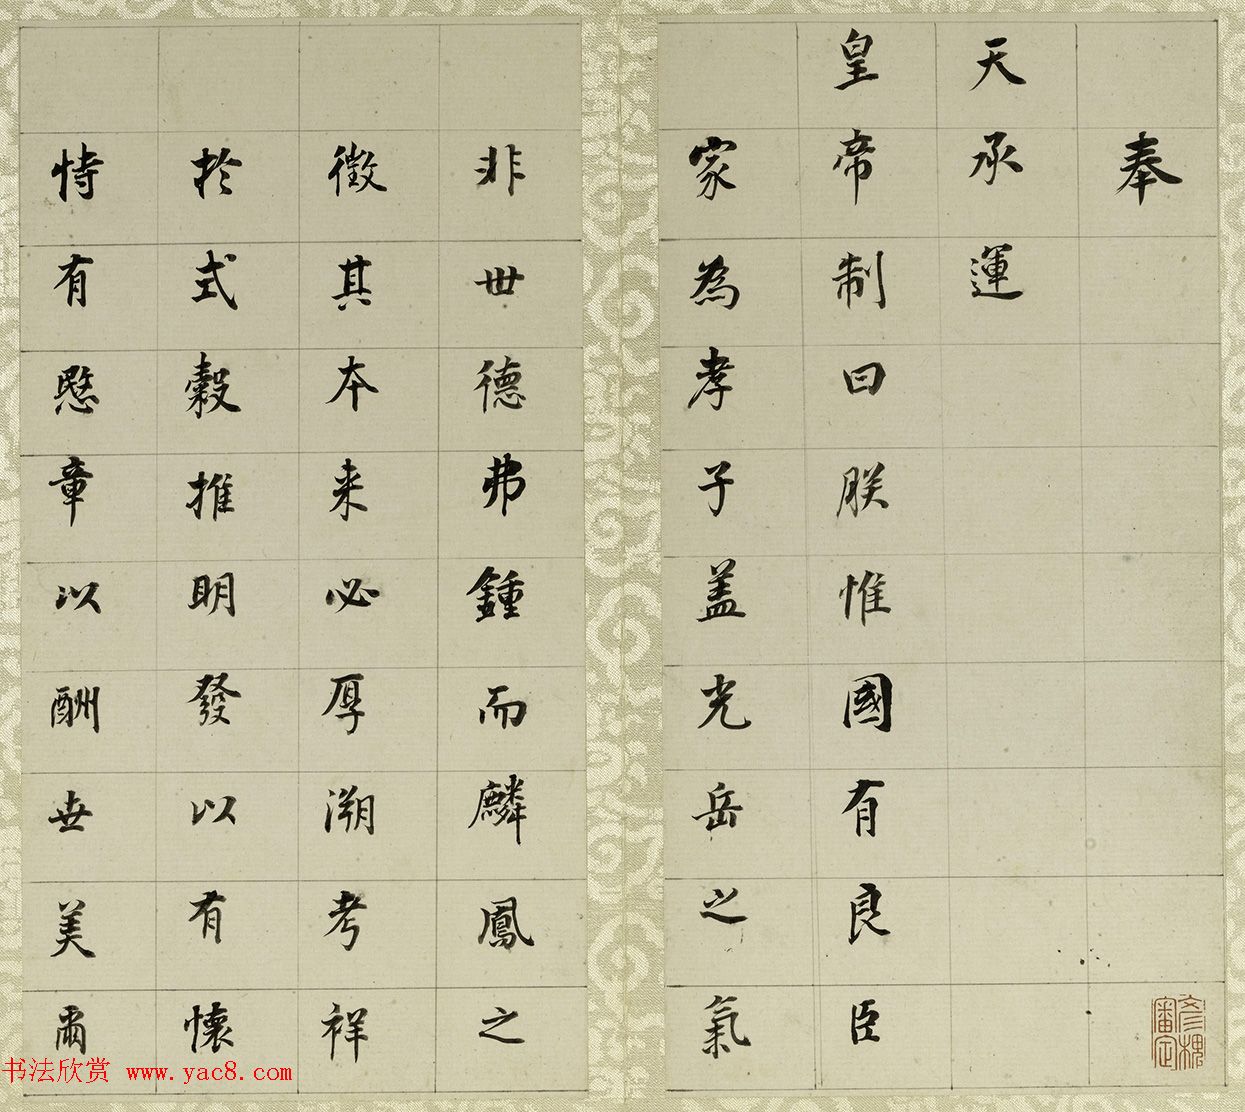 奉
天承運
皇帝制曰朕惟國有良臣
家為孝子蓋光岳之氣
非世德弗鍾而麟鳳之
徵其本来必厚溯考祥
於式穀推明發以有懷
恃有愍章以酬世美爾
書法欣赏 www.yac8.com